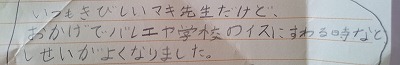 いつもきびしいマキ先生だけど、
おかげでバレエや学校のイスにすわる時など
しせいがよくなりました。